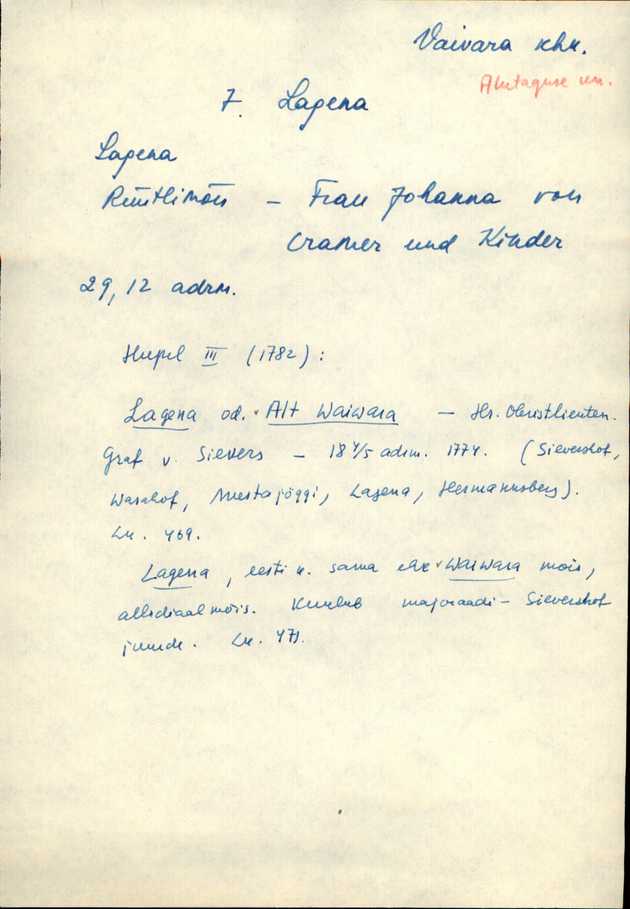 Vaivara khk.
Alutaguse km.
7. Lagena
Lagena
Rüütlimõis – Frau Johanna von
Cramer und Kinder
29,12 adrm.
Hupel III (1782):
Lagena od. Alt Waiwara – Hr. Obristlieuten.
Graf v. Sievers – 18 4/5 adrm. 1774. (Sievershof,
Wasahof, Mustajöggi, Lagena, Hermannsberg).
Lk. 469.
Lagena, eesti k. sama ehk Waiwara mois,
allodiaalmõis. Kuulub majoraadi – Sievershof
juurde. Lk. 471.